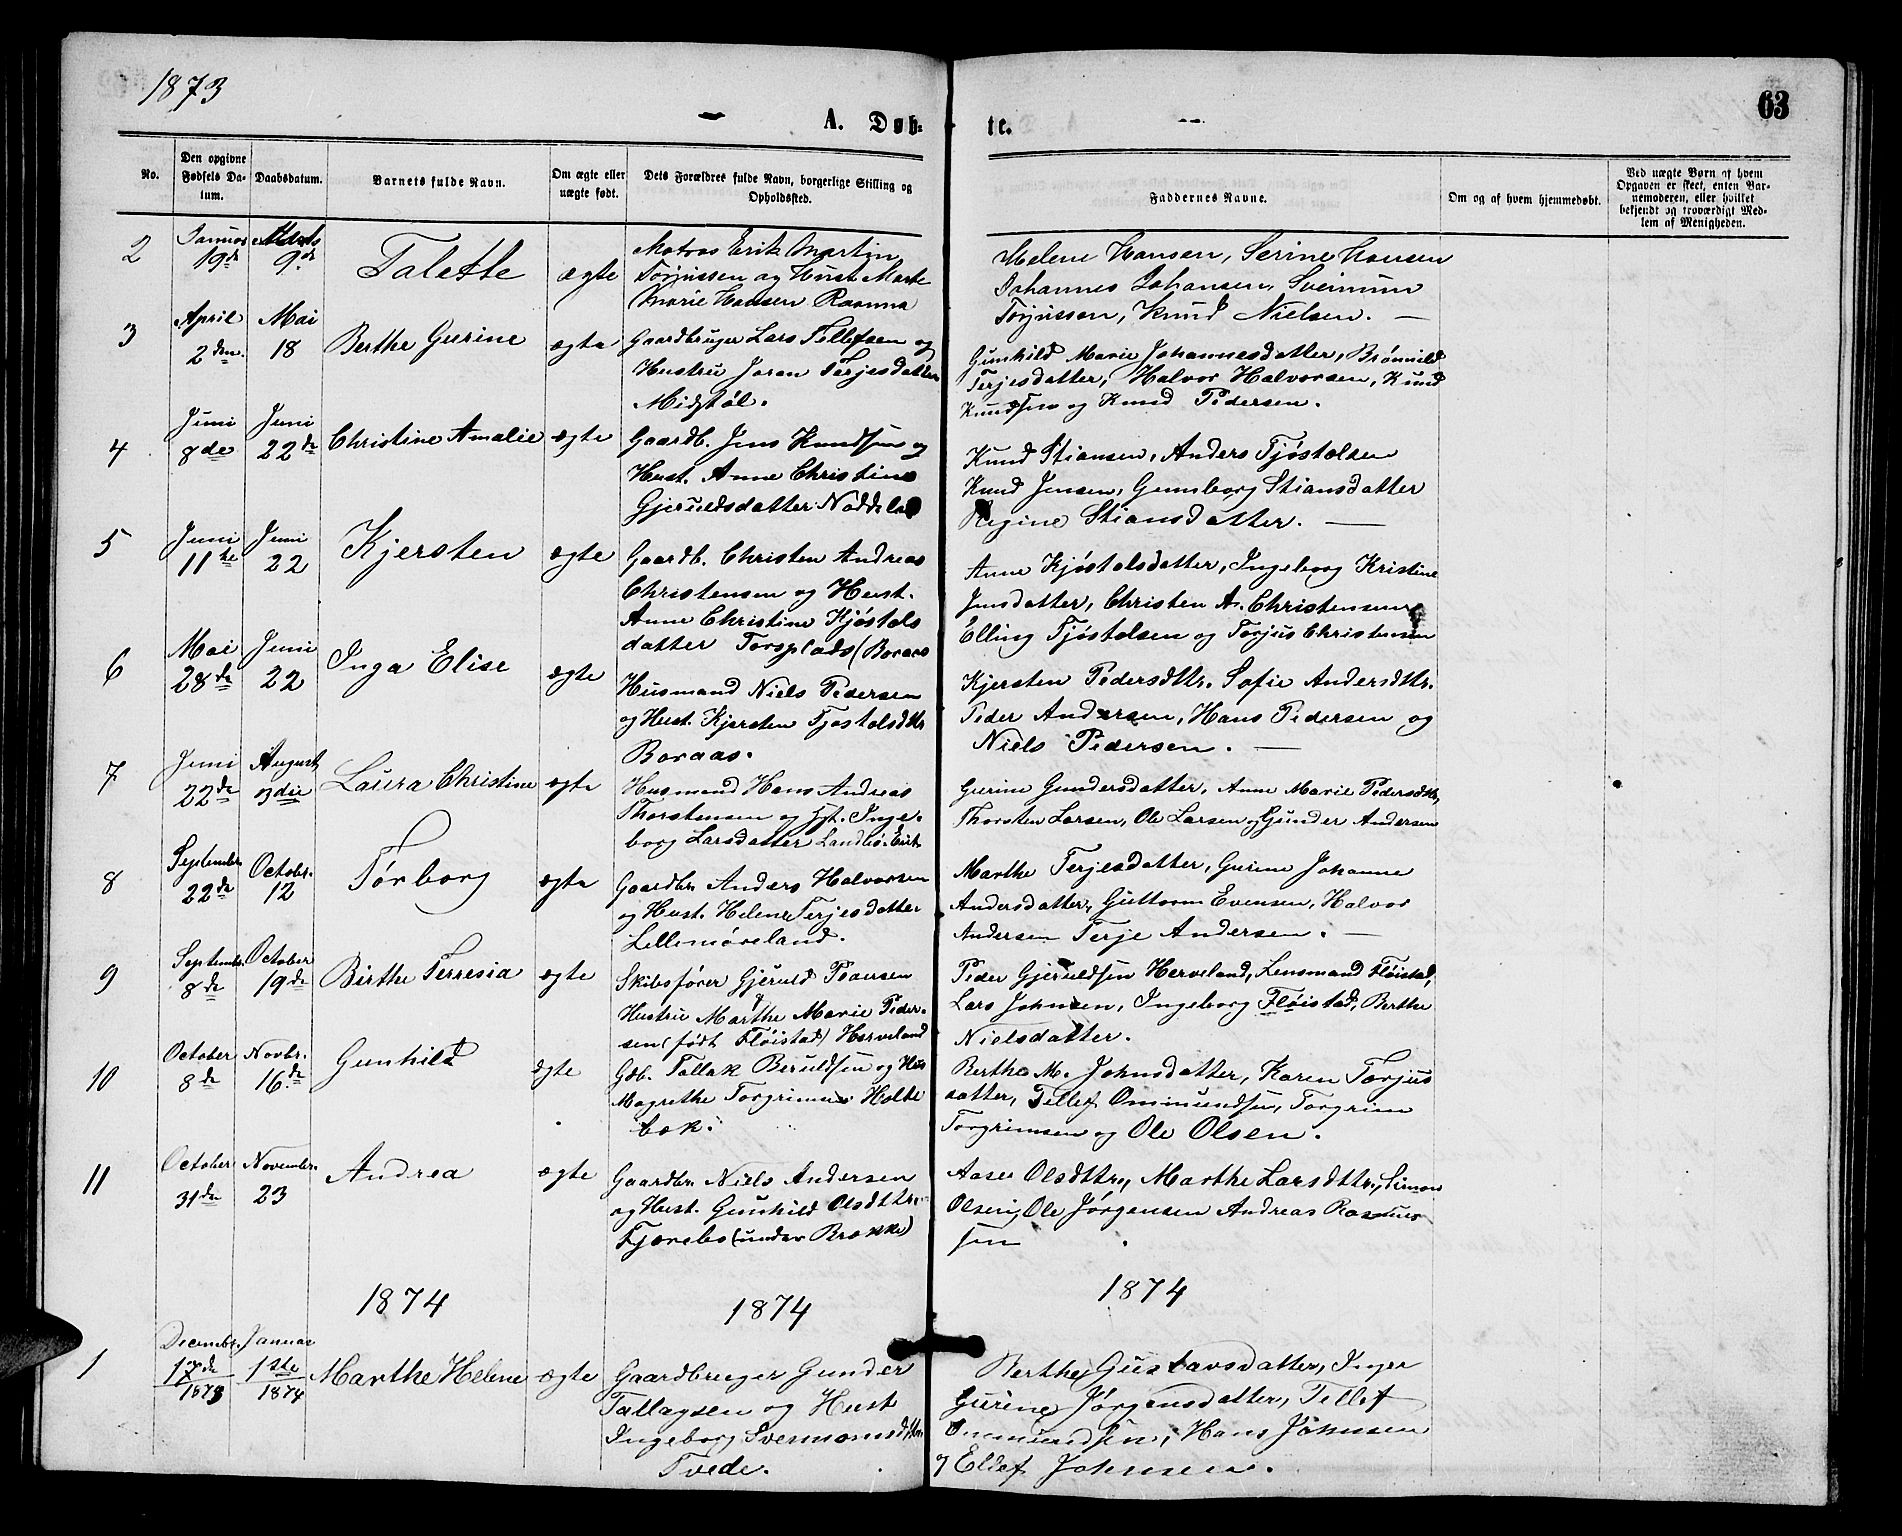 1873
63
A. Døb-
te.
No.
Den opgivne Fødsels Da-tum.
Daabsdatum.
Barnets fulde Navn.
Om ægte eller uægte født.
Dets Forældres fulde Navn, borgerlige Stilling og Opholdssted.
Faddernes Navne.
Om og af hvem hjemmedøbt.
Ved uægte Børn af hvem Opgaven er skeet, enten Bar-nemoderen, eller hvilket bekjendt og troværdigt Med-lem af Menigheden.
2
Januar 19de
Marts 9de
Talette
ægte
Matros Erik Martin
Torjussen og Hust Marte
Marie Hansen Raanna
Helene Hansen, Serine Hansen
Johannes Johansen,
Torjussen, Knud Nielsen. —
3
April 2den
Mai 18
Berthe Gurine
ægte
Gaardbruger Lars Tellefsen og
Hustru Joran Terjesdatter
Midtøl.
Gunhild Marie Johannesdatter, Brønnild
Terjesdatter, Halvor Halvorsen, Knud
Knudsen og Knud Pedersen.
4
Juni 8de
Juni 22de
Christine Amalie
ægte
Gaardb. Jens Knudsen og
Hust. Anne Christine
Gjeruldsdatter
Knud Stiansen, Anders Tjøstolsen
Knud Jensen, Gunborg Stiansdatter
Regine Stiansdatter. —
5
Juni 11te
Juni 22
Kjersten
ægte
Gaardb. Christen Andreas
Christensen og Hust.
Anne Christine Kjøstols
datter Torsplads (Boraas
Anne Kjøstolsdatter, Ingeborg Kristine
Jensdatter, Christen A. Christensen,
Elling Tjøstolsen og Torjus Christensen
6
Mai 28de
Juni 22
Inga Elise
ægte
Husmand Niels Pedersen
og Hust. Kjersten Tjøstolsdtr
Boraas.
Kjersten Pedersdttr. Sofie Andersdttr.
Peder Andersen, Hans Pedersen og
Niels Pedersen. —
7
Juni 22de
August 3die
Laura Christine
ægte
Husmand Hans Andreas
Thorstensen og Hst. Inge-
borg Larsdatter
Gurine Gundersdatter, Anne Marie Pedersdttr,
Thorsten Larsen, Ole Larsen og Gunder Andersen
8
Septembr. 22de
Octobr. 12
Torborg
ægte
Gaardbr. Anders Halvorsen
og Hust. Helene Terjesdatter
Lillemøreland.
Marthe Terjesdatter, Gurine Johanne
Andersdatter, Guttorm Evensen, Halvor
Andersen Terje Andersen. —
9
Septembr. 8de
October 19de
Birthe Terresia
ægte
Skibsfører Gjeruld Peersen
Hustru Marthe Marie Peder-
sen (født Fløistad) Herveland
Peder Gjeruldsen Herveland, Lensmand Fløistad,
Lars Johnsen, Ingeborg Fløistad, Berthe
Nielsdatter.
10
October 8de
Novbr. 16de
Gunhild
ægte
Gdb. Tallak Beruldsen og Hus
Magrethe Torgrimns Holte
bak.
Berthe M. Johnsdatter, Karen Torjus
datter, Tellef Ommundsen, Torgrim
Torgrimsen og Ole Olsen.
11
October 31de
Novembr. 23
Andrea
ægte
Gaardbr. Niels Andersen
og Hust. Gunhild Olsdttr.
Fjærebo (under Brække)
Aase Olsdttr, Marthe Larsdttr, Simon
Olsen, Ole Jørgensen Andreas Rasmus
sen
1874
1874
1874
1
Decembr. 17de 1873
Januar 1ste 1874
Marthe Helene
ægte
Gaardbruger Gunder
Tallagsen og Hust
Ingeborg
Tvede.
Berthe Gustavsdatter, Inger
Gurine Jørgensdatter, Tellef
Ommundsen, Hans Johnsen
og Eldef Johnsen.